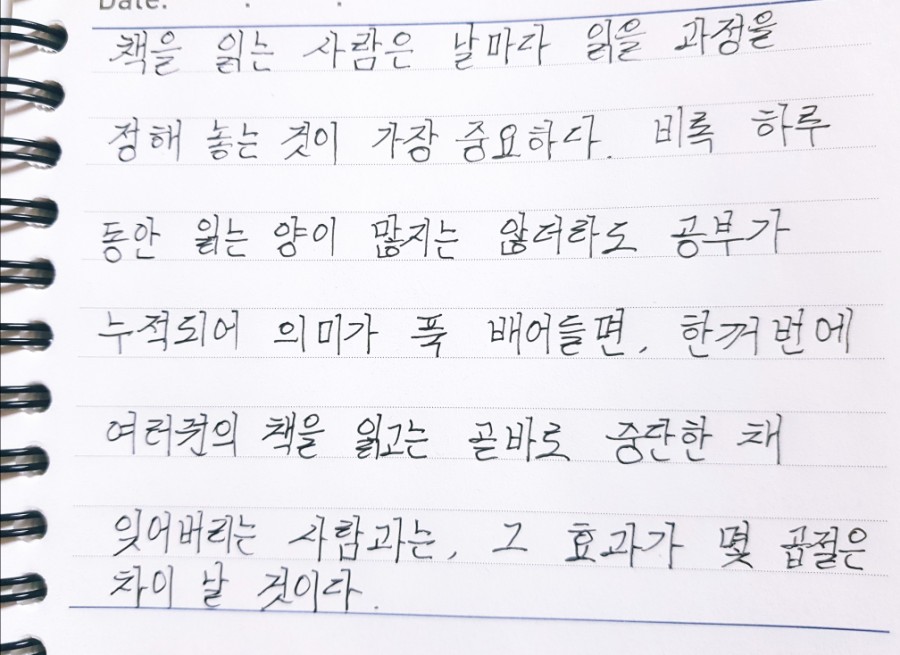 Date. . .
책을 읽는 사람은 날마다 읽을 과정을
정해 놓는 것이 가장 중요하다. 비록 하루
동안 읽는 양이 많지는 않더라도 공부가
누적되어 의미가 푹 배어들면, 한꺼번에
여러권의 책을 읽고는 곧바로 중단한 채
잊어버리는 사람과는, 그 효과가 몇 곱절은
차이 날 것이다.